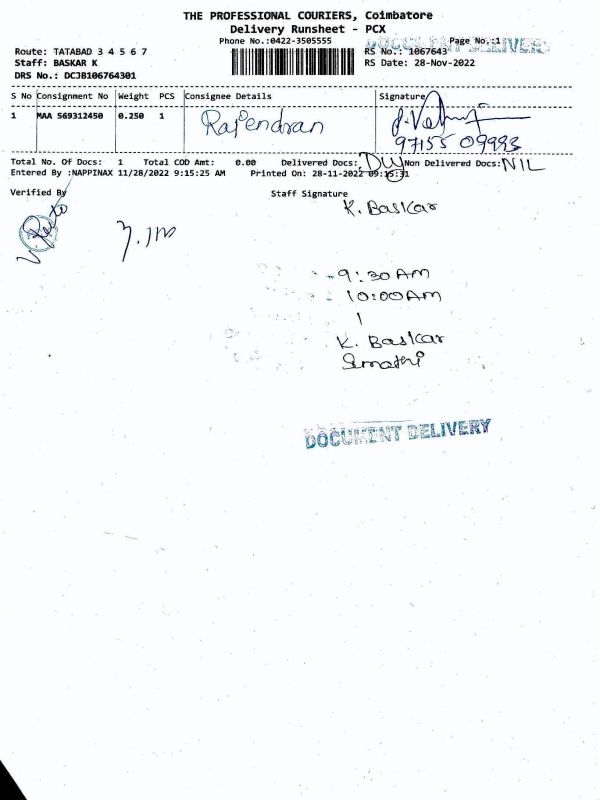 THE PROFESSIONAL COURIERS, Coimbatore
Delivery Runsheet - PCX
Phone No.:0422-3505555
DOCUMENT DELIVERY
Page No.:1
Route: TATABAD 3 4 5 6 7
RS No.: 1067643
Staff: BASKAR K
RS Date: 28-Nov-2022
DRS No.: DCJB106764301
S No Consignment No Weight PCS Consignee Details Signature
1 MAA 569312450 0.250 1 Rajendran
97155 09993
Total No. Of Docs: 1 Total COD Amt: 0.00 Delivered Docs: Non Delivered Docs: NIL
Entered By :NAPPINAX 11/28/2022 9:15:25 AM Printed On: 28-11-2022 09:15:31
Verified By Staff Signature
K. Baskar
9:30 AM
10:00 AM
1
K. Baskar
DOCUMENT DELIVERY